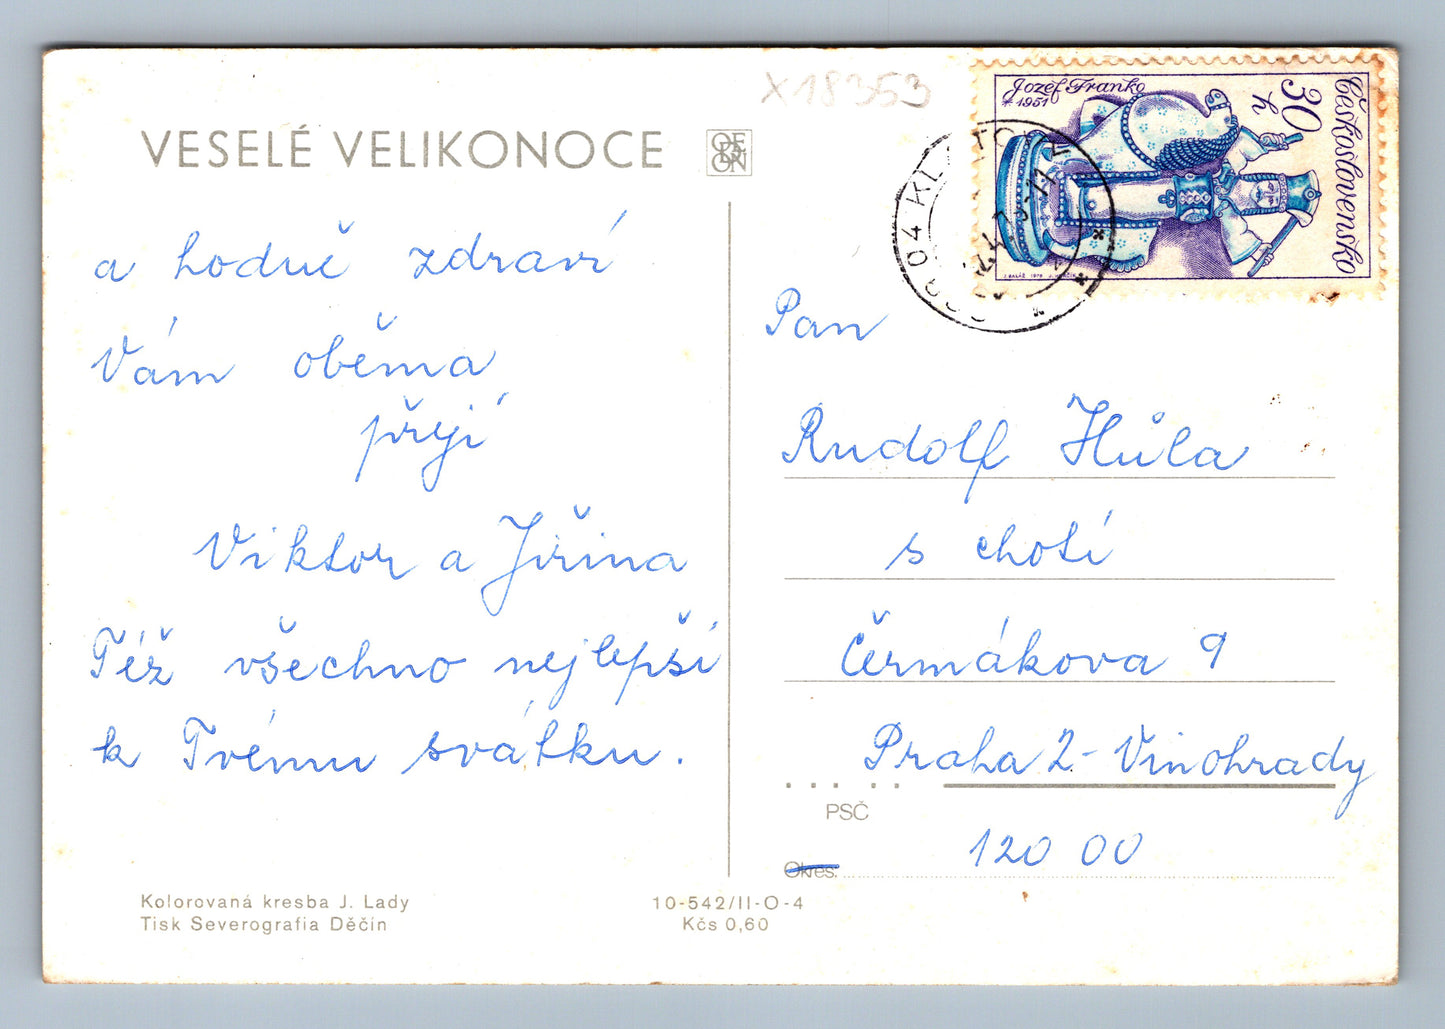 X18353
VESELÉ VELIKONOCE
ODEON
a hodně zdraví
Vám oběma
přejí
Viktor a Jiřina
Též všechno nejlepší
k Tvému svátku.
Kolorovaná kresba J. Lady
Tisk Severografia Děčín
10-542/II-O-4
Kčs 0,60
Jozef Franko
* 1951
30
h
Československo
Pan
Rudolf Hůla
s chotí
Čermákova 9
Praha 2 - Vinohrady
PSČ
120 00
Okres: